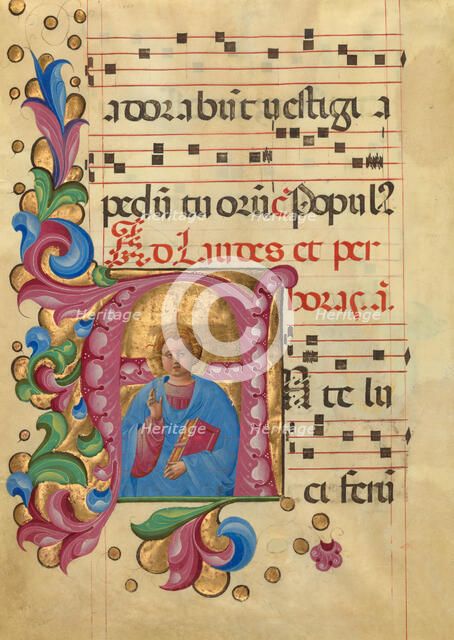 adorabūt uestigi a
pedū tuorūꝫ Popul⁊
Ad Laudes et per
horas añ.
Ante lu
ci ferū
Heritage
Heritage
Heritage
Heritage
Heritage
Heritage